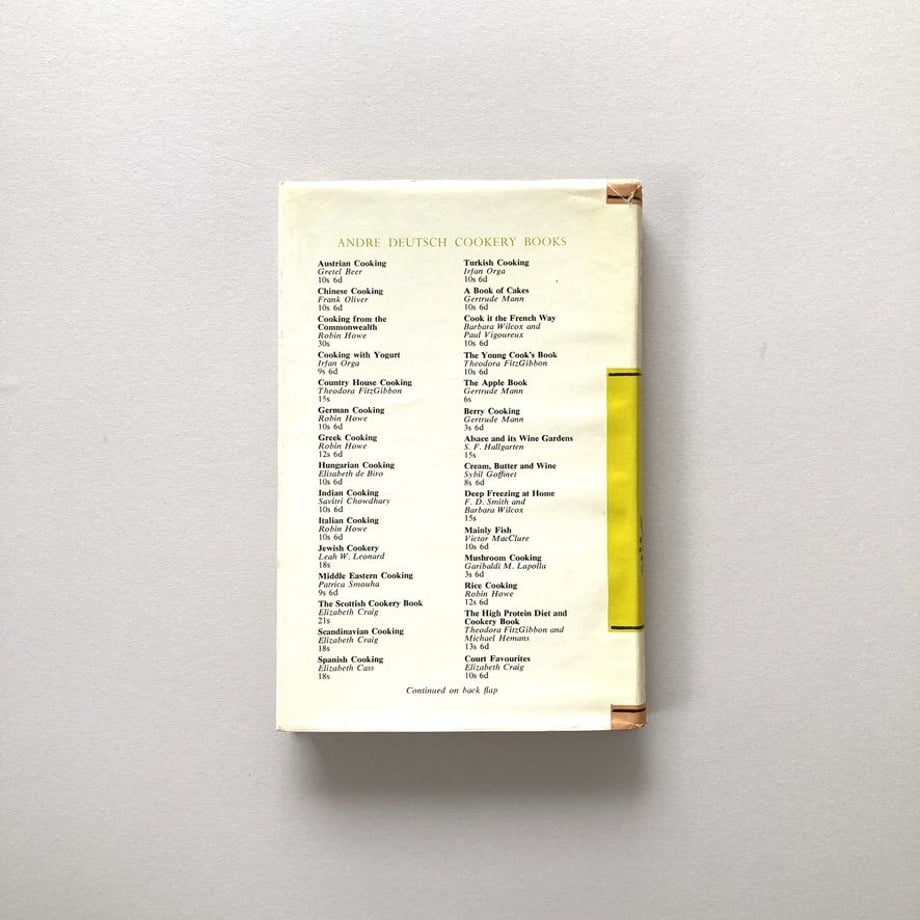 ANDRE DEUTSCH COOKERY BOOKS
Austrian Cooking
Gretel Beer
10s 6d
Chinese Cooking
Frank Oliver
10s 6d
Cooking from the
Commonwealth
Robin Howe
30s
Cooking with Yogurt
Irfan Orga
9s 6d
Country House Cooking
Theodora FitzGibbon
15s
German Cooking
Robin Howe
10s 6d
Greek Cooking
Robin Howe
12s 6d
Hungarian Cooking
Elisabeth de Biro
10s 6d
Indian Cooking
Savitri Chowdhary
10s 6d
Italian Cooking
Robin Howe
10s 6d
Jewish Cookery
Leah W. Leonard
18s
Middle Eastern Cooking
Patrica Smouha
9s 6d
The Scottish Cookery Book
Elizabeth Craig
21s
Scandinavian Cooking
Elizabeth Craig
18s
Spanish Cooking
Elizabeth Cass
18s
Turkish Cooking
Irfan Orga
10s 6d
A Book of Cakes
Gertrude Mann
10s 6d
Cook it the French Way
Barbara Wilcox and
Paul Vigoureux
10s 6d
The Young Cook's Book
Theodora FitzGibbon
10s 6d
The Apple Book
Gertrude Mann
6s
Berry Cooking
Gertrude Mann
3s 6d
Alsace and its Wine Gardens
S. F. Hallgarten
15s
Cream, Butter and Wine
Sybil Goffinet
8s 6d
Deep Freezing at Home
F. D. Smith and
Barbara Wilcox
15s
Mainly Fish
Victor MacClure
10s 6d
Mushroom Cooking
Garibaldi M. Lapolla
3s 6d
Rice Cooking
Robin Howe
12s 6d
The High Protein Diet and
Cookery Book
Theodora FitzGibbon and
Michael Hemans
13s 6d
Court Favourites
Elizabeth Craig
10s 6d
Continued on back flap